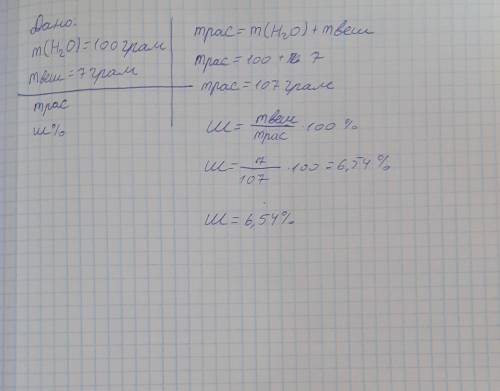 Дано.
m(H₂O)=100грам
mвеш=7грам
mрас
ш%
mрас=m(H₂O)+mвеш
mрас=100+ 7
mрас=107грамс
Ш=mвеш/mрас·100%
Ш=7/107·100=6,54%
Ш=6,54%